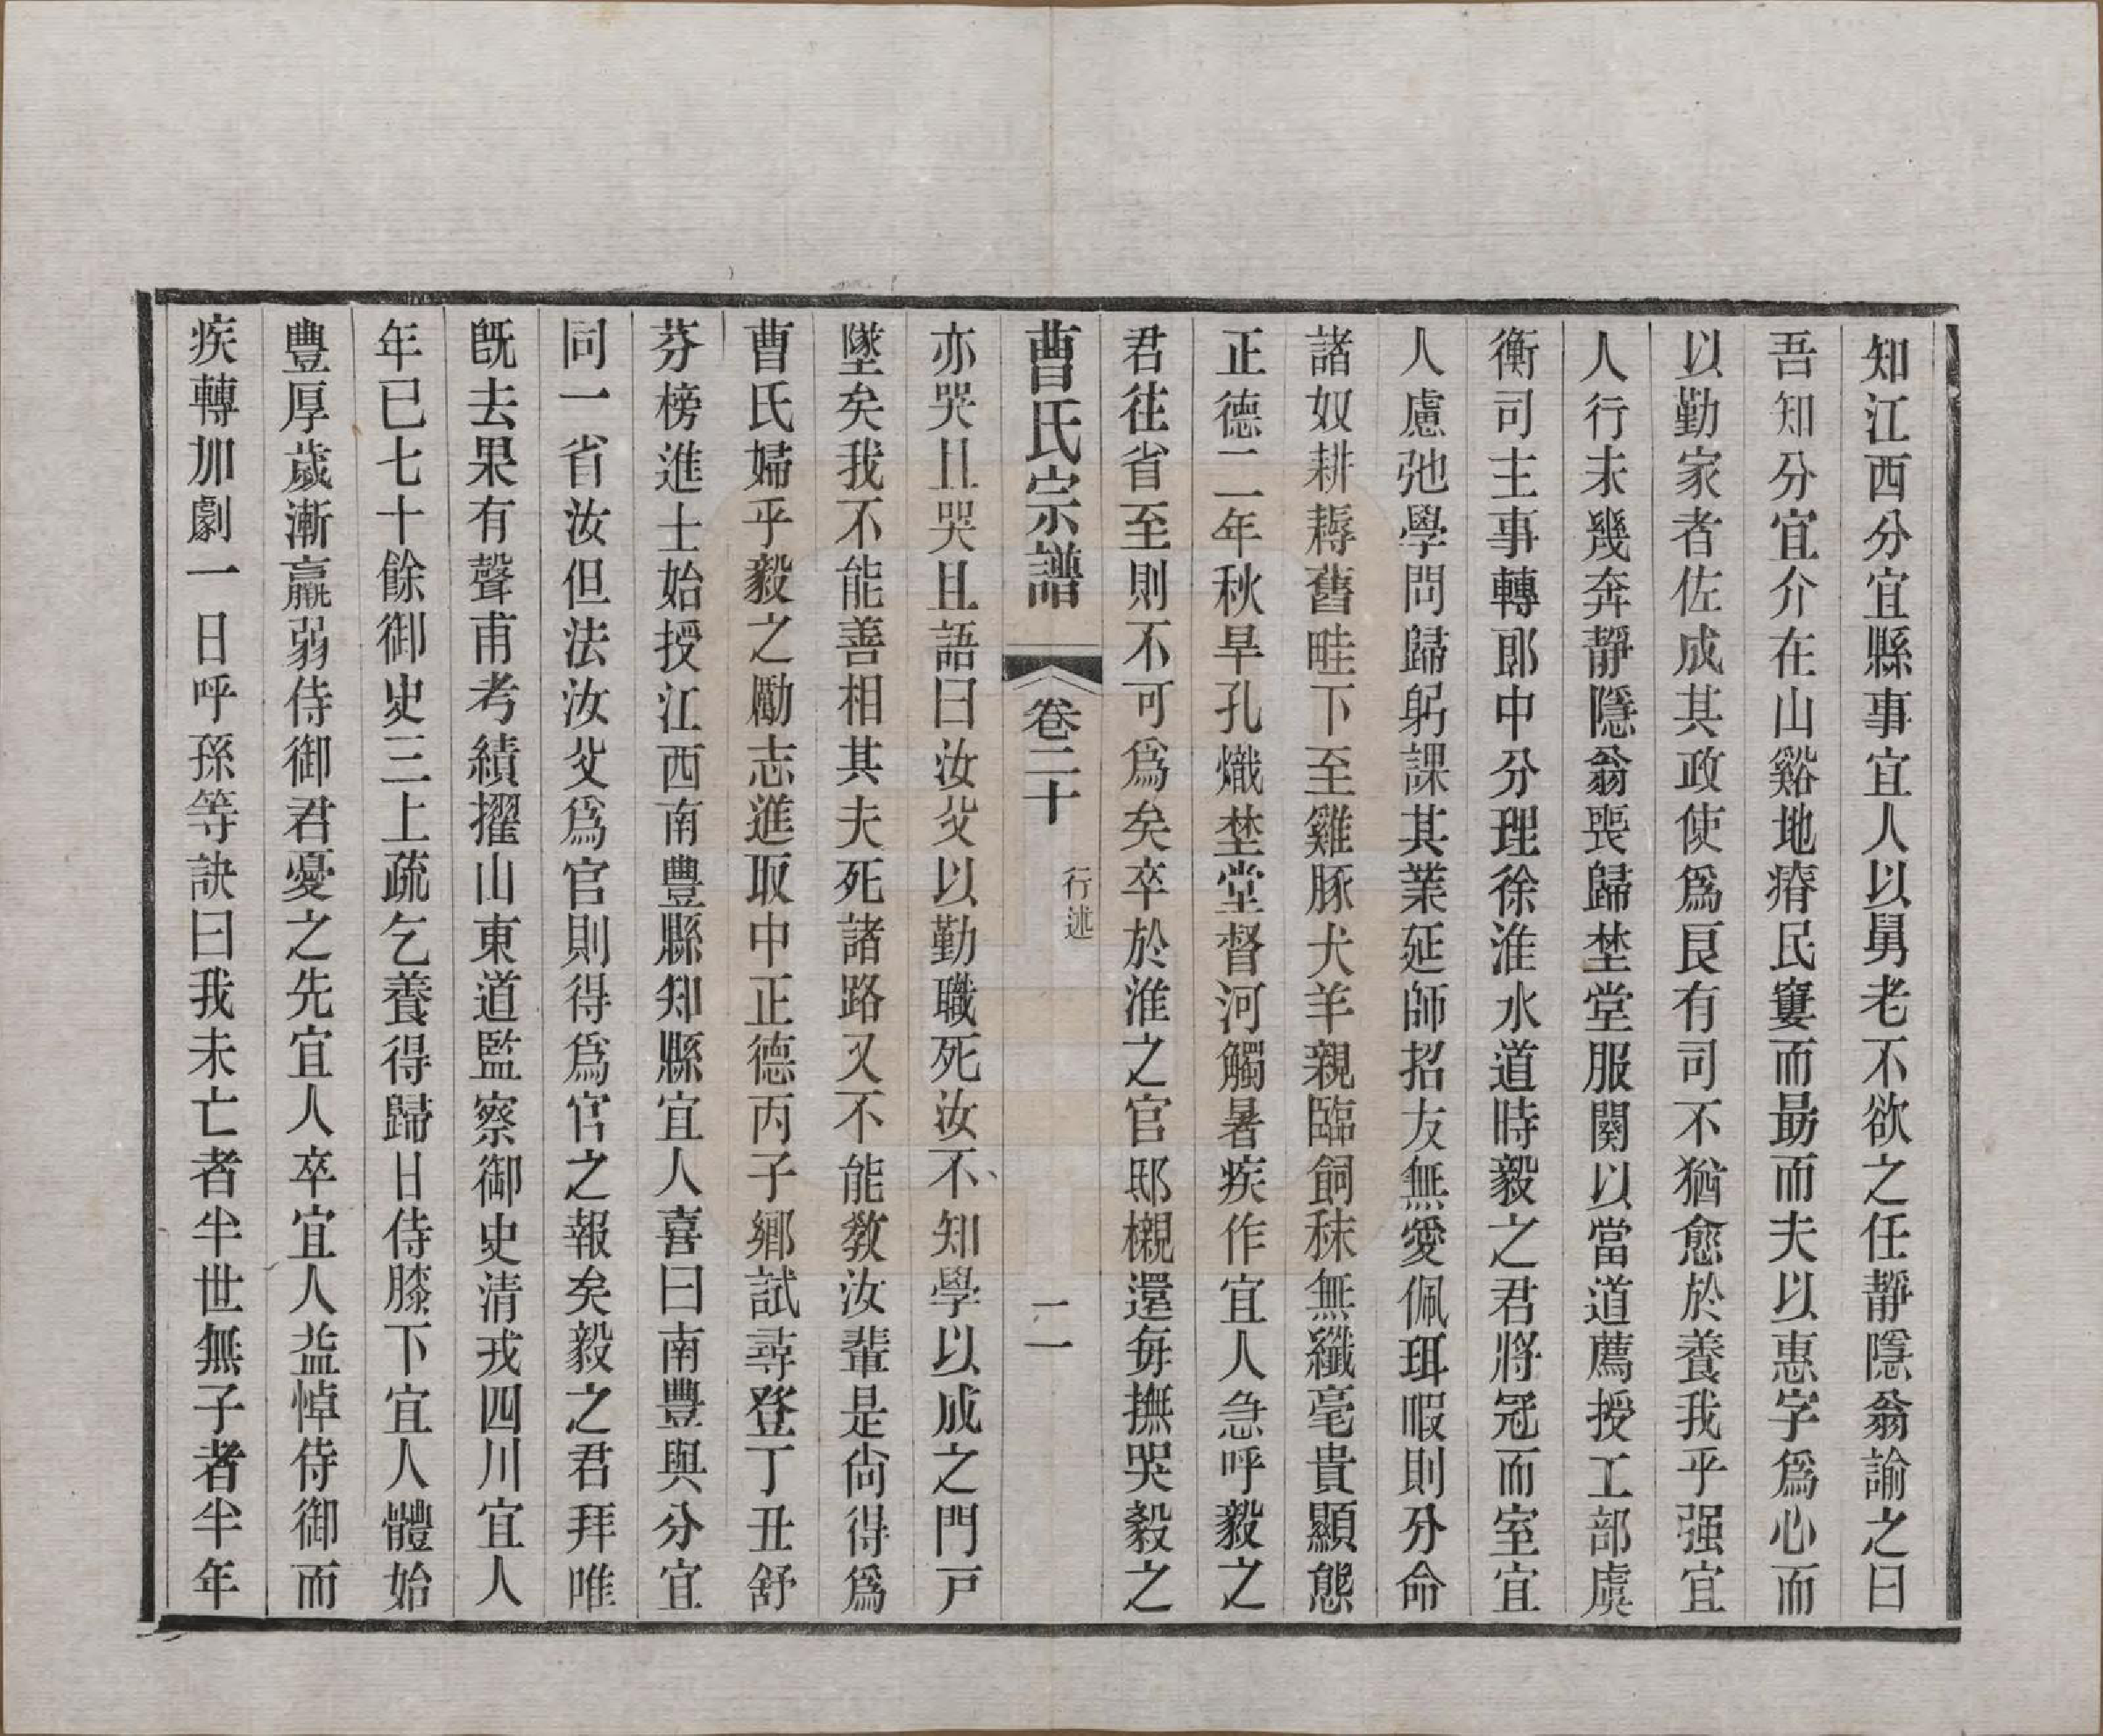 知江西分宜縣事宜人以舅老不欲之任靜隱翁諭之曰
吾知分宜介在山谿地瘠民窶而勗而夫以惠字爲心而
以勤家者佐成其政使爲艮有司不猶愈於養我乎强宜
人行未幾奔靜隱翁喪歸埜堂服闋以當道薦授工部虞
衡司主事轉郎中分理徐淮水道時毅之君將冠而室宜
人慮弛學問歸躬課其業延師招友無愛佩珥暇則分命
諸奴耕耨舊畦下至雞豚犬羊親臨飼秣無纖毫貴顯態
正德二年秋旱孔熾埜堂督河觸暑疾作宜人急呼毅之
君往省至則不可爲矣卒於淮之官邸櫬還毎撫哭毅之
曹氏宗譜 卷二十 行述 二
亦哭且哭且語曰汝父以勤職死汝不知學以成之門戸
墜矣我不能善相其夫死諸路又不能敎汝輩是尙得爲
曹氏婦乎毅之勵志進取中正德丙子鄉試尋登丁丑舒
芬榜進士始授江西南豐縣知縣宜人喜曰南豐與分宜
同一省汝但法汝父爲官則得爲官之報矣毅之君拜唯
旣去果有聲甫考績擢山東道監察御史清戎四川宜人
年已七十餘御史三上疏乞養得歸日侍膝下宜人體始
豐厚歲漸羸弱侍御君憂之先宜人卒宜人益悼侍御而
疾轉加劇一日呼孫等訣曰我未亡者半世無子者半年